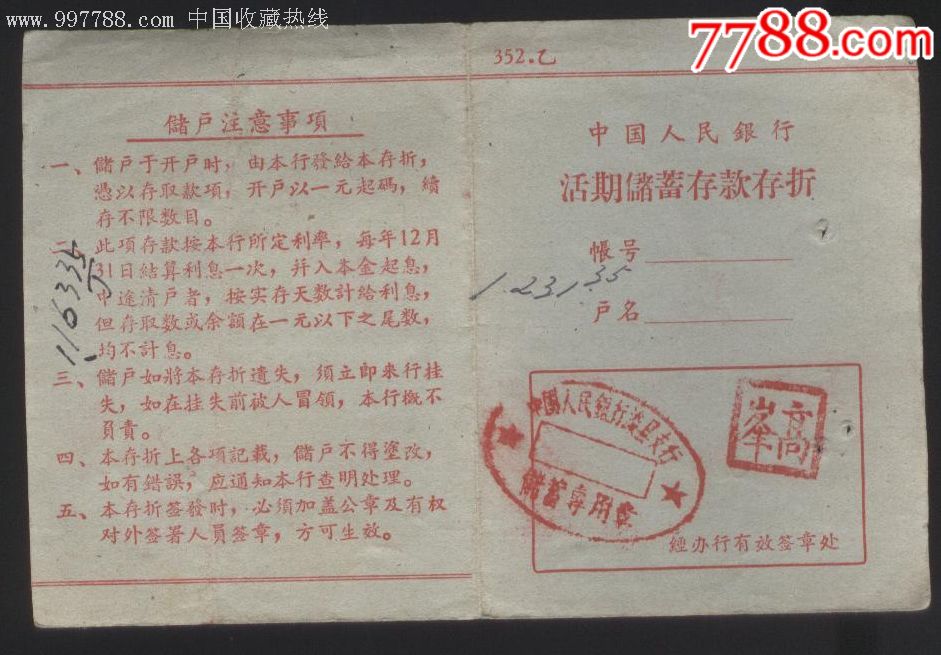 www.997788.com 中国收藏热线
7788.com
儲户注意事項
一、儲户于开户时，由本行發給本存折，
憑以存取款項，开户以一元起碼，續
存不限数目。
二、此項存款按本行所定利率，每年12月
31日結算利息一次，并入本金起息，
中途清户者，按实存天数計給利息，
但存取数或余額在一元以下之尾数，
均不計息。
三、儲户如將本存折遺失，須立即来行挂
失，如在挂失前被人冒領，本行概不
負責。
四、本存折上各項記載，儲户不得塗改，
如有錯誤，应通知本行查明处理。
五、本存折签發时，必須加盖公章及有权
对外签署人員签章，方可生效。
116335
352.乙
中国人民銀行
活期儲蓄存款存折
帳号
1.231.35
户名
中國人民銀行
儲蓄專用章
高峯
經办行有效签章处